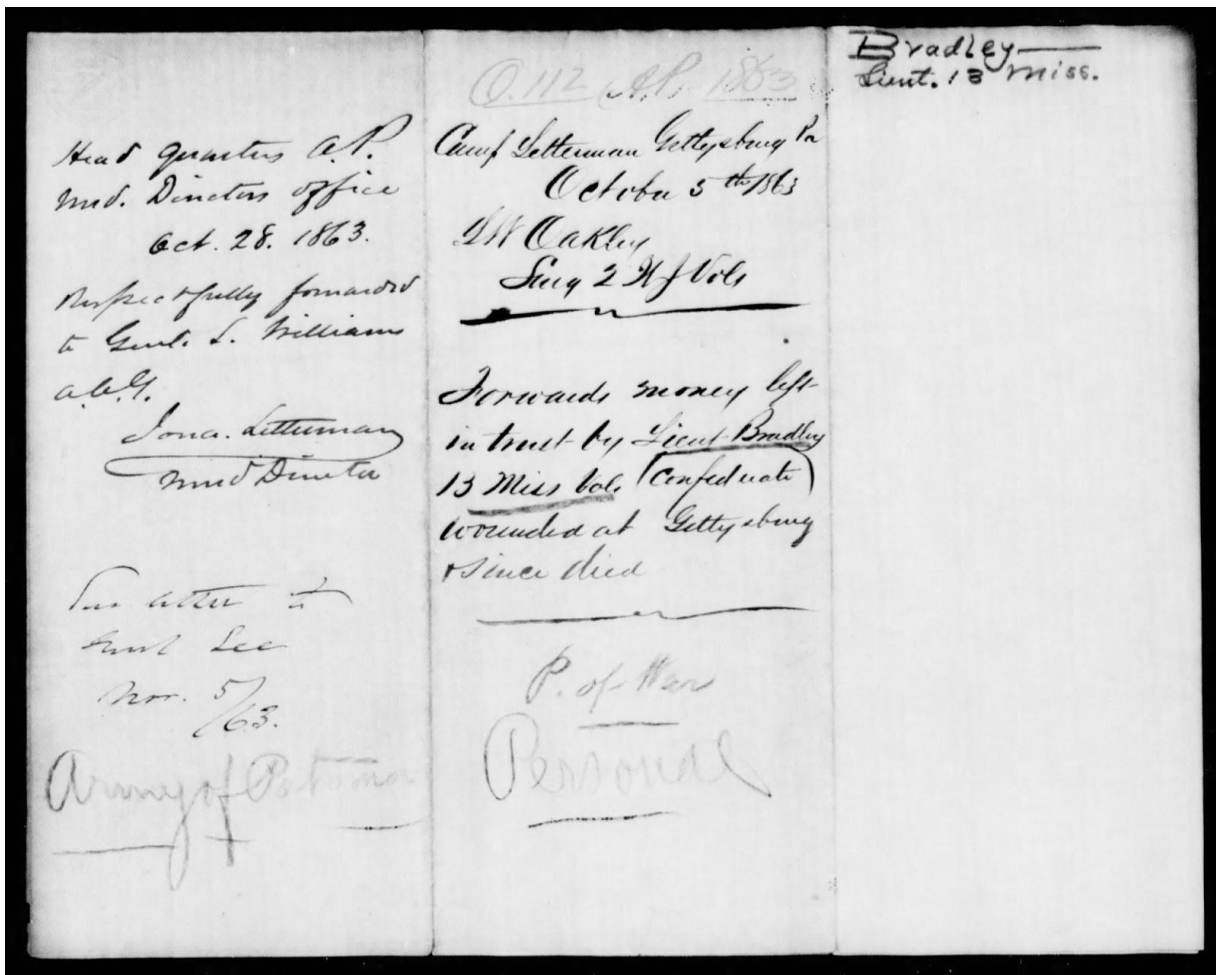 Head quarters A.P.
Med. Directors office
Oct. 28. 1863.
Respectfully forwarded
to Genl. S. Williams
A.A.G.
Jona. Letterman
Med Director
letter to
Genl Lee
Nov. 5/63.
Army of Potomac
O.112 (A.P.) 1863
Camp Letterman Gettysburg Pa
October 5th 1863
Oakley
Surg 2 N J Vols
Forwards money left
in trust by Lieut Bradley
13 Miss Vols (Confederate)
wounded at Gettysburg
& since died
P. of War
Personal
Bradley
Lieut. 13 Miss.